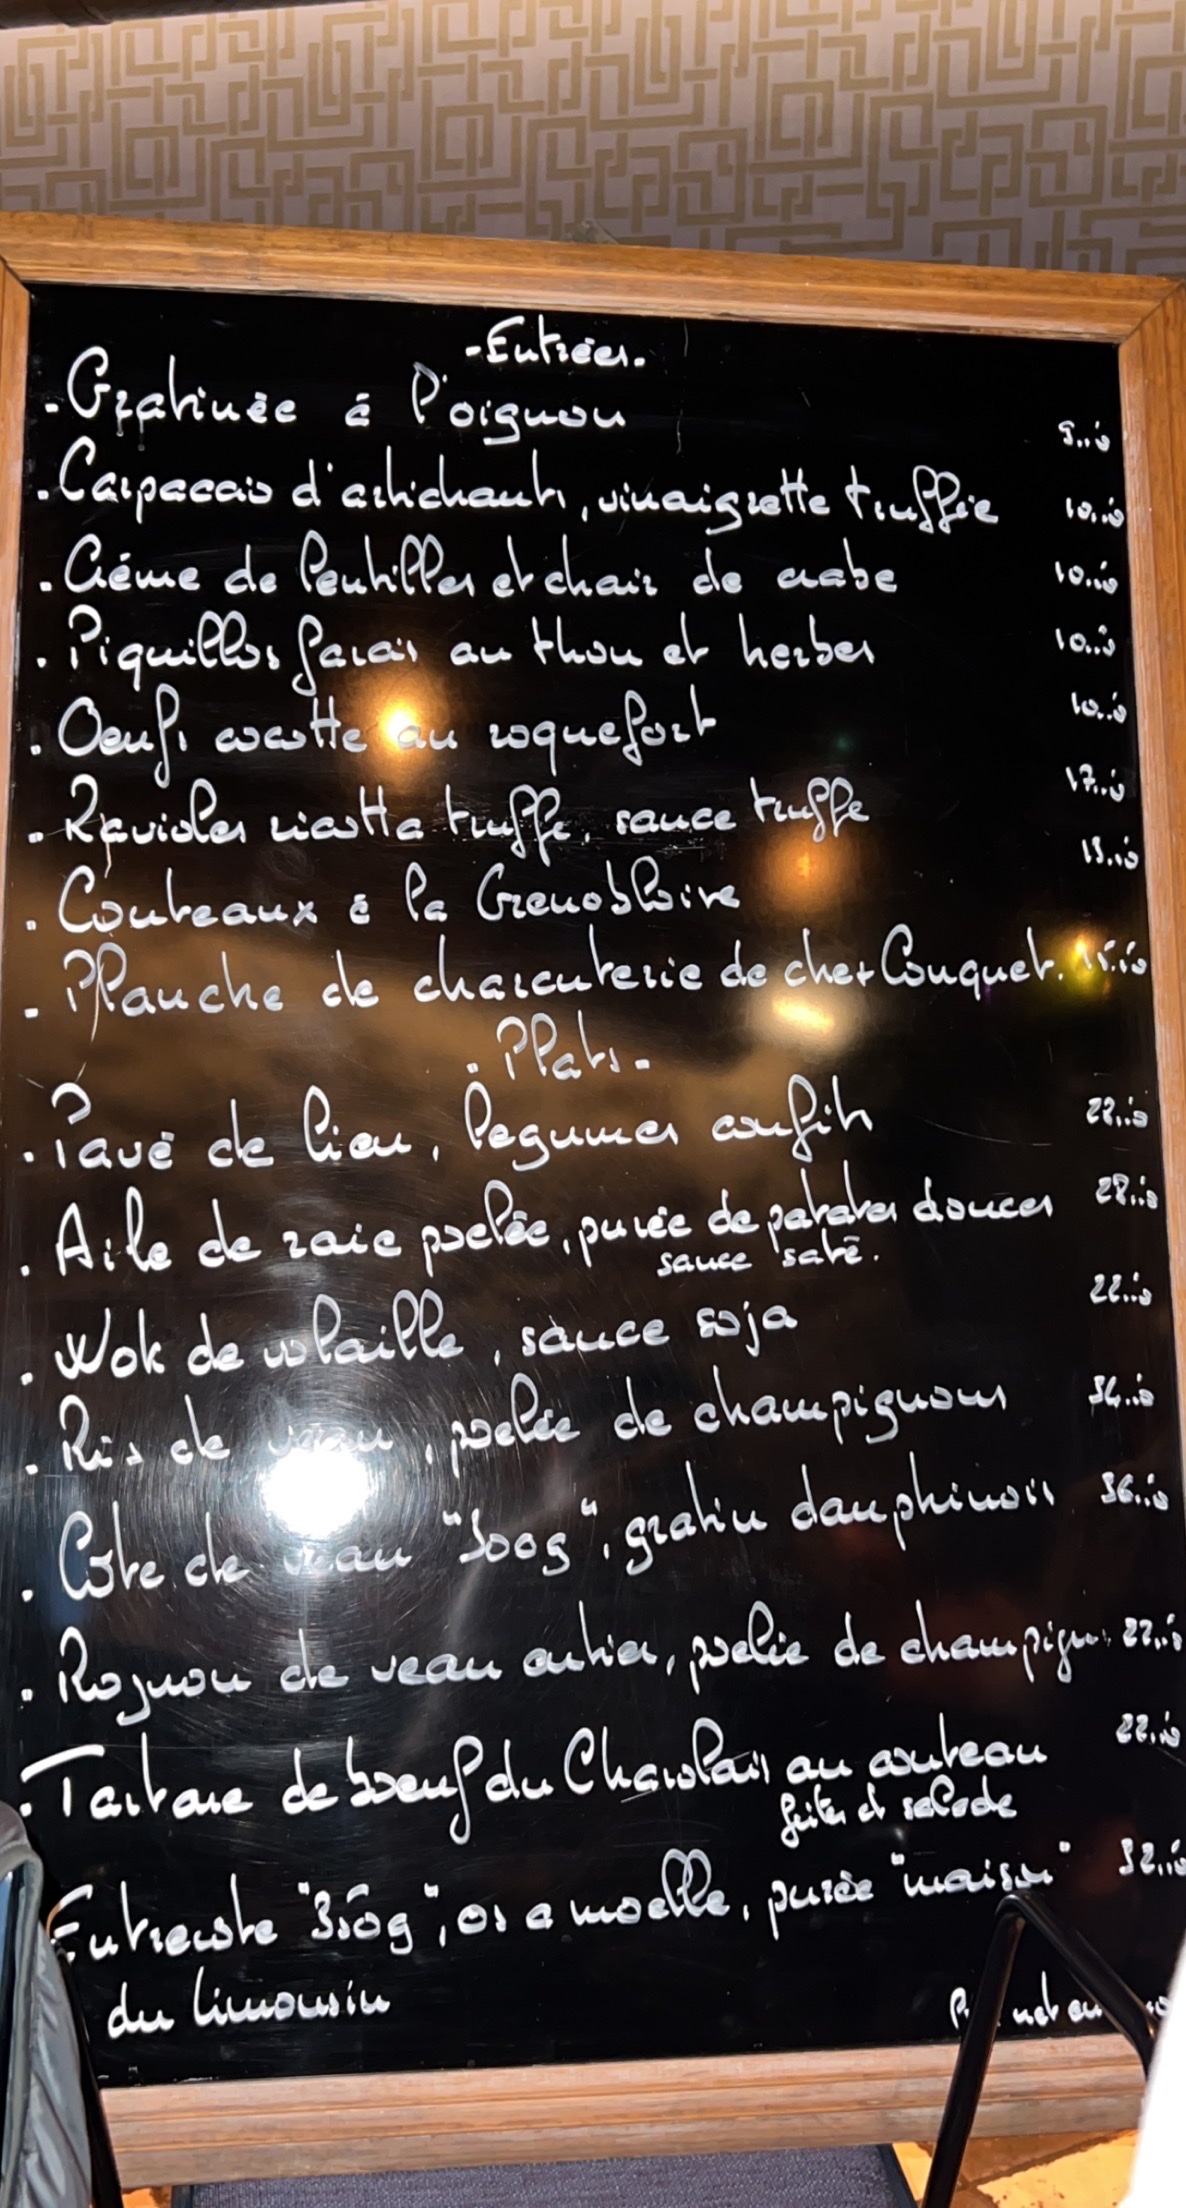 -Entrées.
. Gratinée à l'oignon 9.00
. Carpaccio d'artichauts, vinaigrette truffée 10.00
. Crème de lentilles et chair de crabe 10.00
. Piquillos farcis au thon et herbes 10.00
. Oeufs cocotte au roquefort 10.00
. Ravioles ricotta truffe, sauce truffe 17.00
. Couteaux à la Grenobloise
. Planche de charcuterie de chez Conquet.
. Plats -
. Pavé de lieu, légumes confits 22.00
. Aile de raie poelée, purée de patates douces
sauce saté.
. Wok de volaille, sauce soja 22.00
. Ris de veau, poelée de champignons 34.00
. Cote de veau "300g", gratin dauphinois 36.00
. Rognon de veau entier, poelée de
. Tartare de boeuf du Charolais au couteau 22.00
frites et salade
Entrecote "350g", os a moelle, purée "maison" 32.00
du limousin
net en